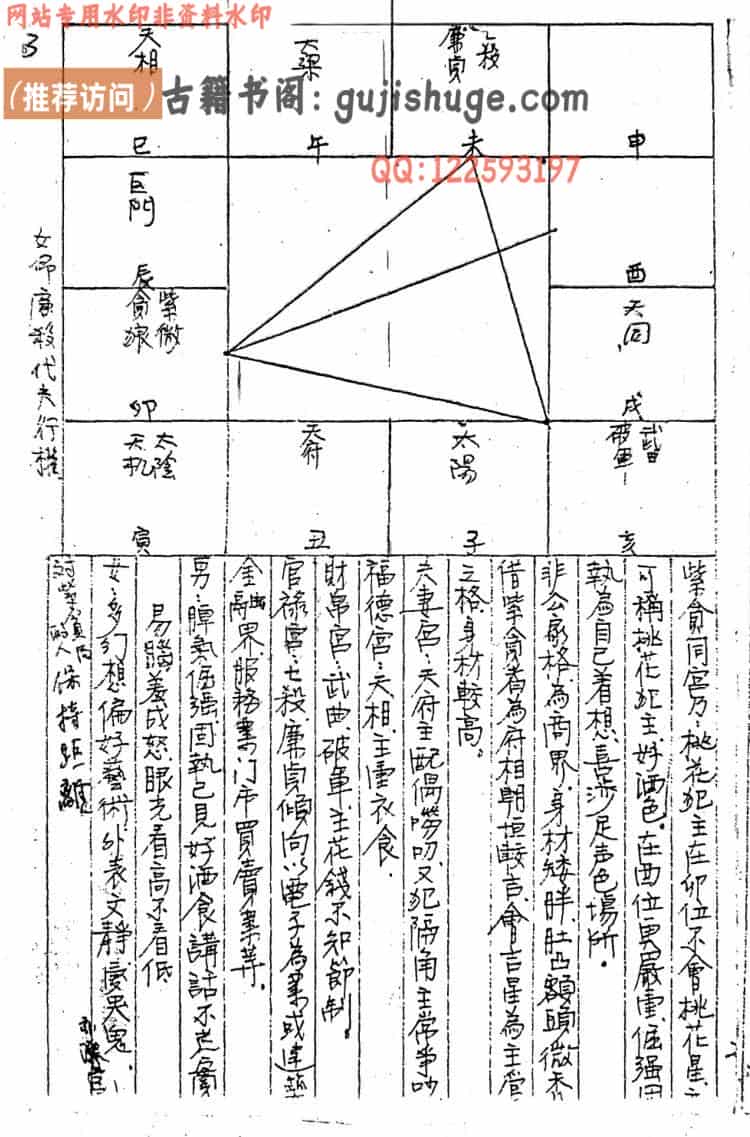 网站专用水印非资料水印
3
（推荐访问）古籍书阁：gujishuge.com
QQ:122593197
天相
巳
天梁
午
七殺
廉貞
未
申
巨門
辰
酉
紫微
貪狼
卯
天同
戌
太陰
天机
寅
天府
丑
太陽
子
武曲
破軍
亥
女命廉殺代夫行權
紫貪同宮乃：桃花犯主在卯位不會桃花星
可稱桃花犯主，好酒色。在酉位更嚴重，倔强固
執為自己着想，喜涉足声色場所。
非公家格，為商界，身材矮胖，肚凸額頭微禿
借紫貪者為府相朝垣較吉，會吉星為主管
之格，身材較高。
夫妻宮：天府主配偶嘮叨，又犯隔角主常爭吵
福德宮：天相，主重衣食。
財帛宮：武曲破軍主花錢不知節制。
官祿宮：七殺廉貞傾向以電子為業或建築
金融界，服務業，门市買賣業等。
男：脾氣倔强，固執己見，好酒食，講話不
易腦羞成怒，眼光看高不看低
女：多幻想，偏好藝術，外表文靜
的人保持距離